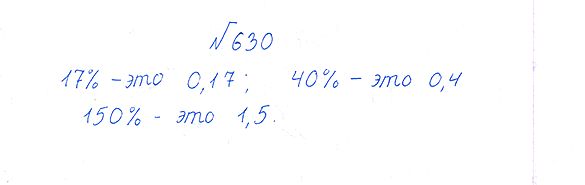 №630
17% – это 0,17; 40% – это 0,4
150% - это 1,5.